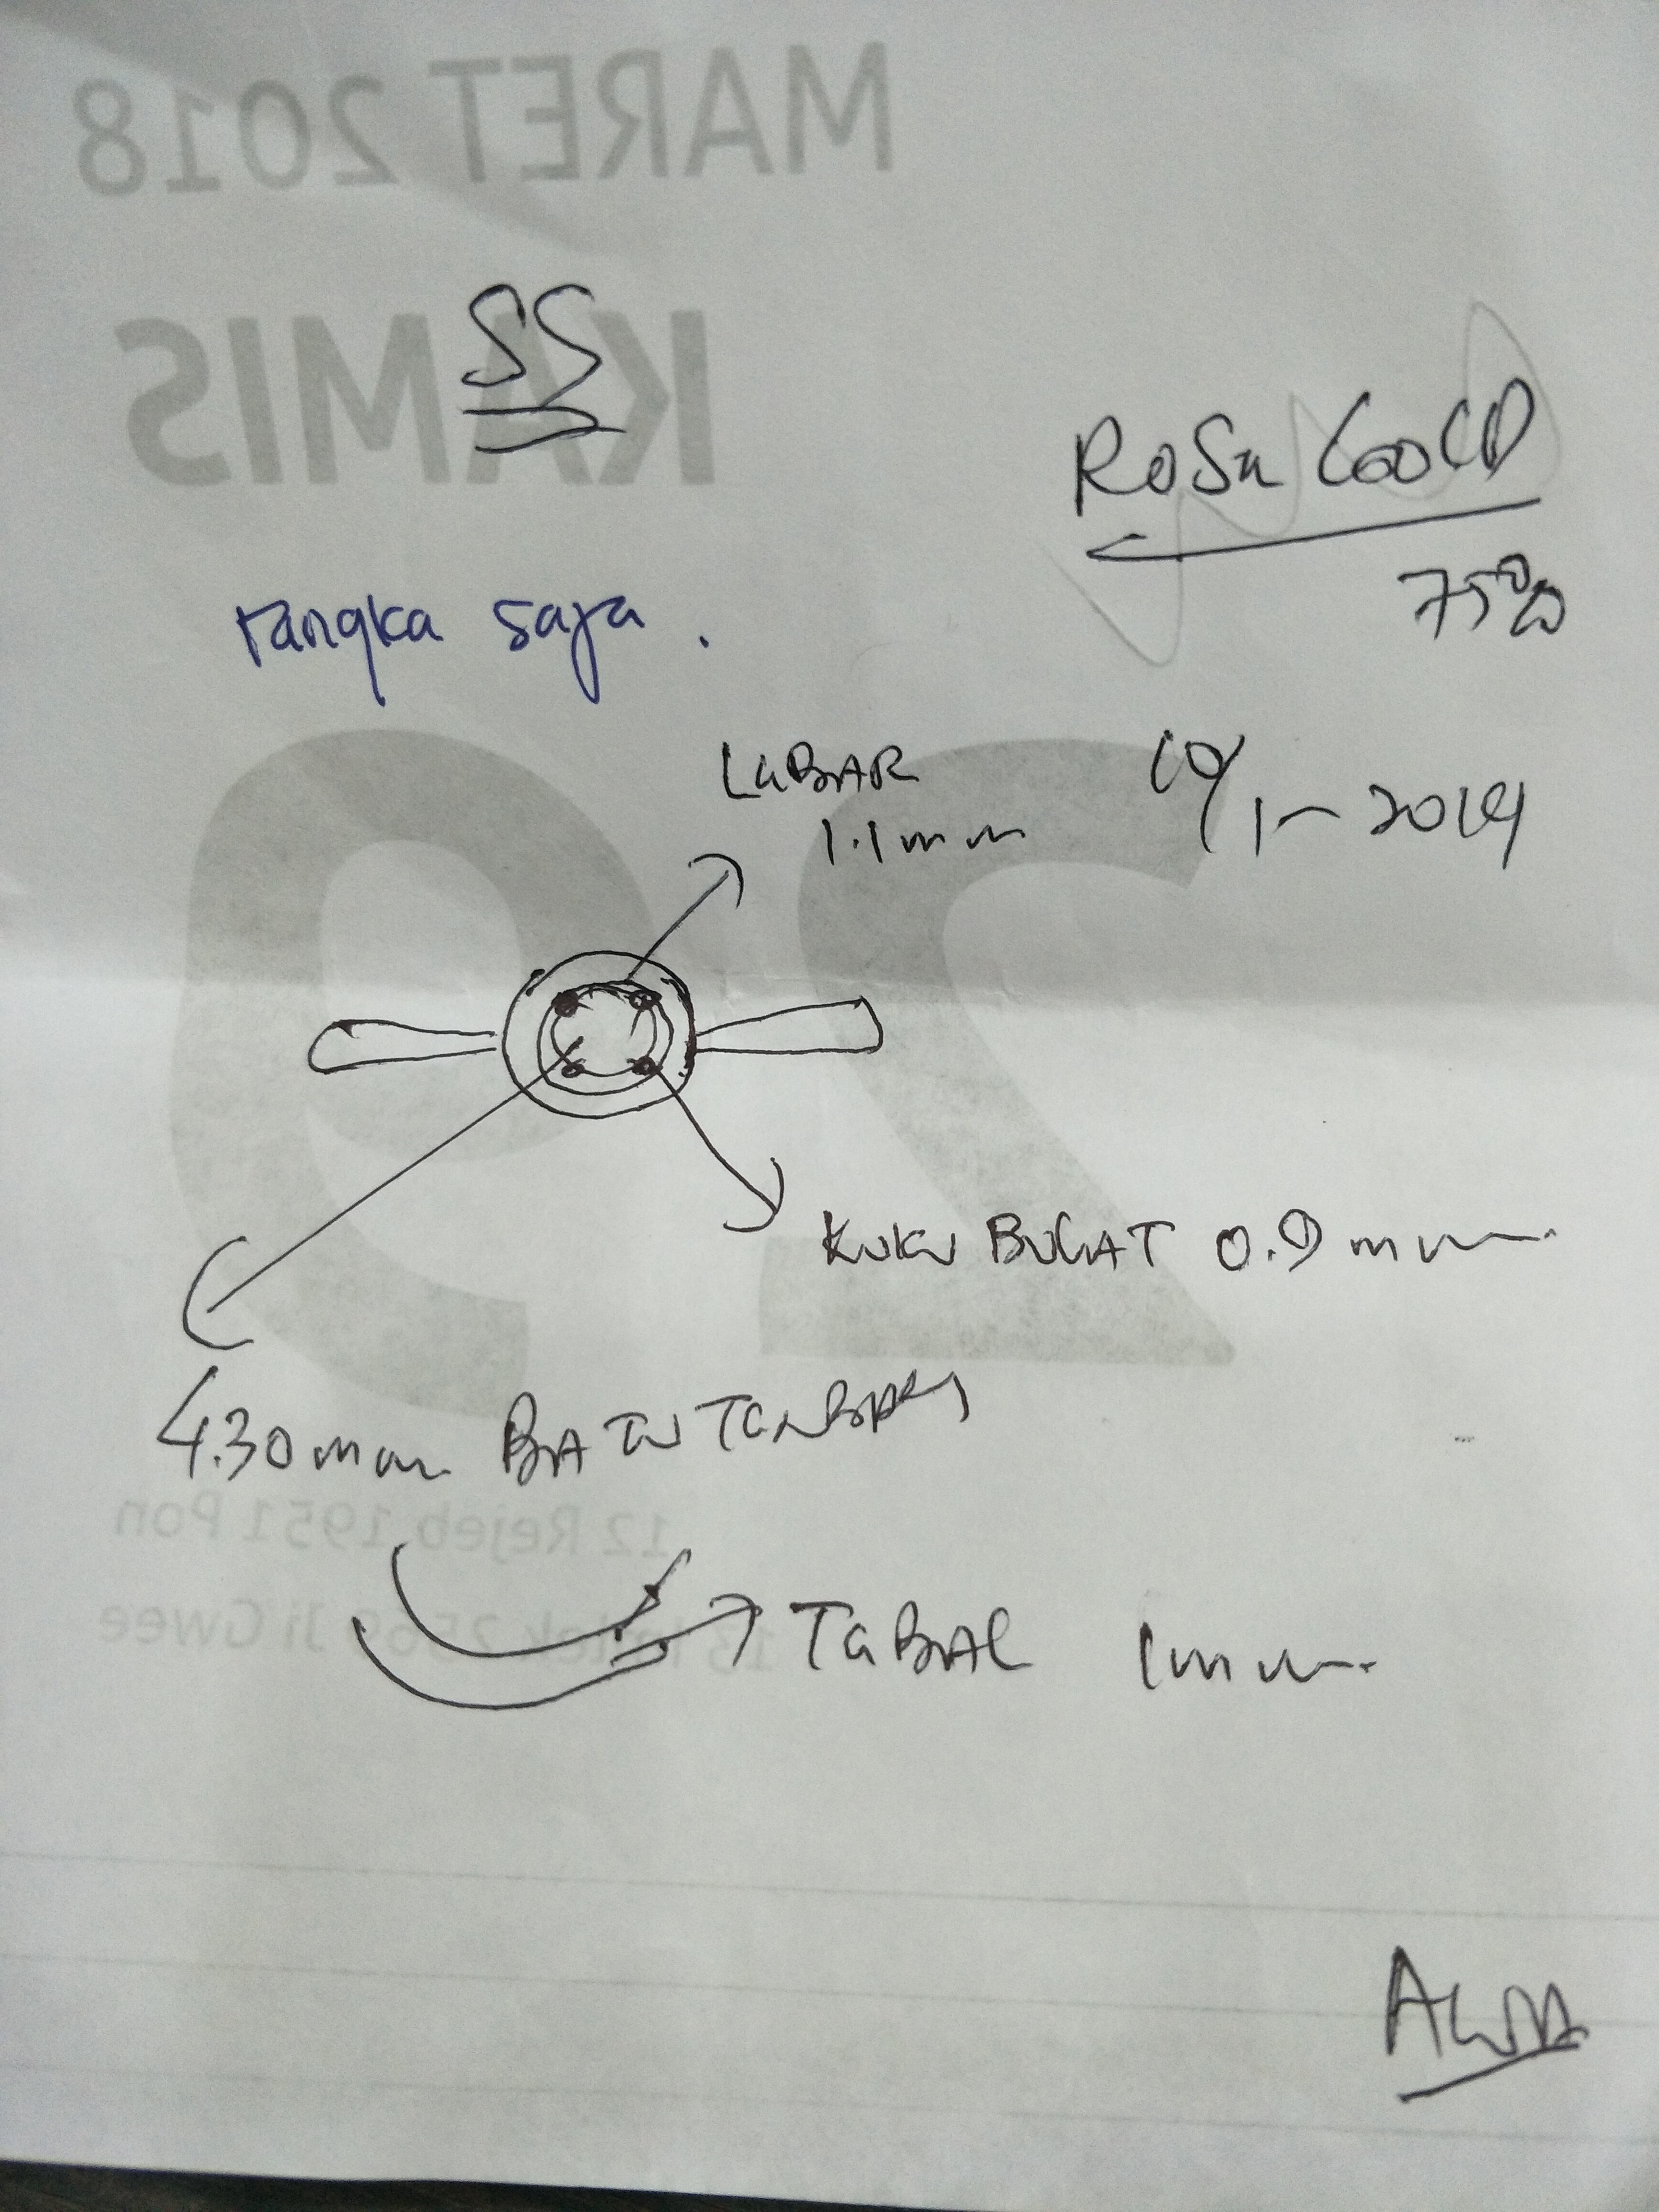 MARET 2018
KAMIS
SS
ROSE GOLD
75%
rangka saja.
LEBAR
1.1 mm
10/1-2019
29
KUKU BULAT 0.9 mm
4.30 mm BATU TENGAH
12 Rejeb 1951 Pon
Ji Gwee
TEBAL 1 mm